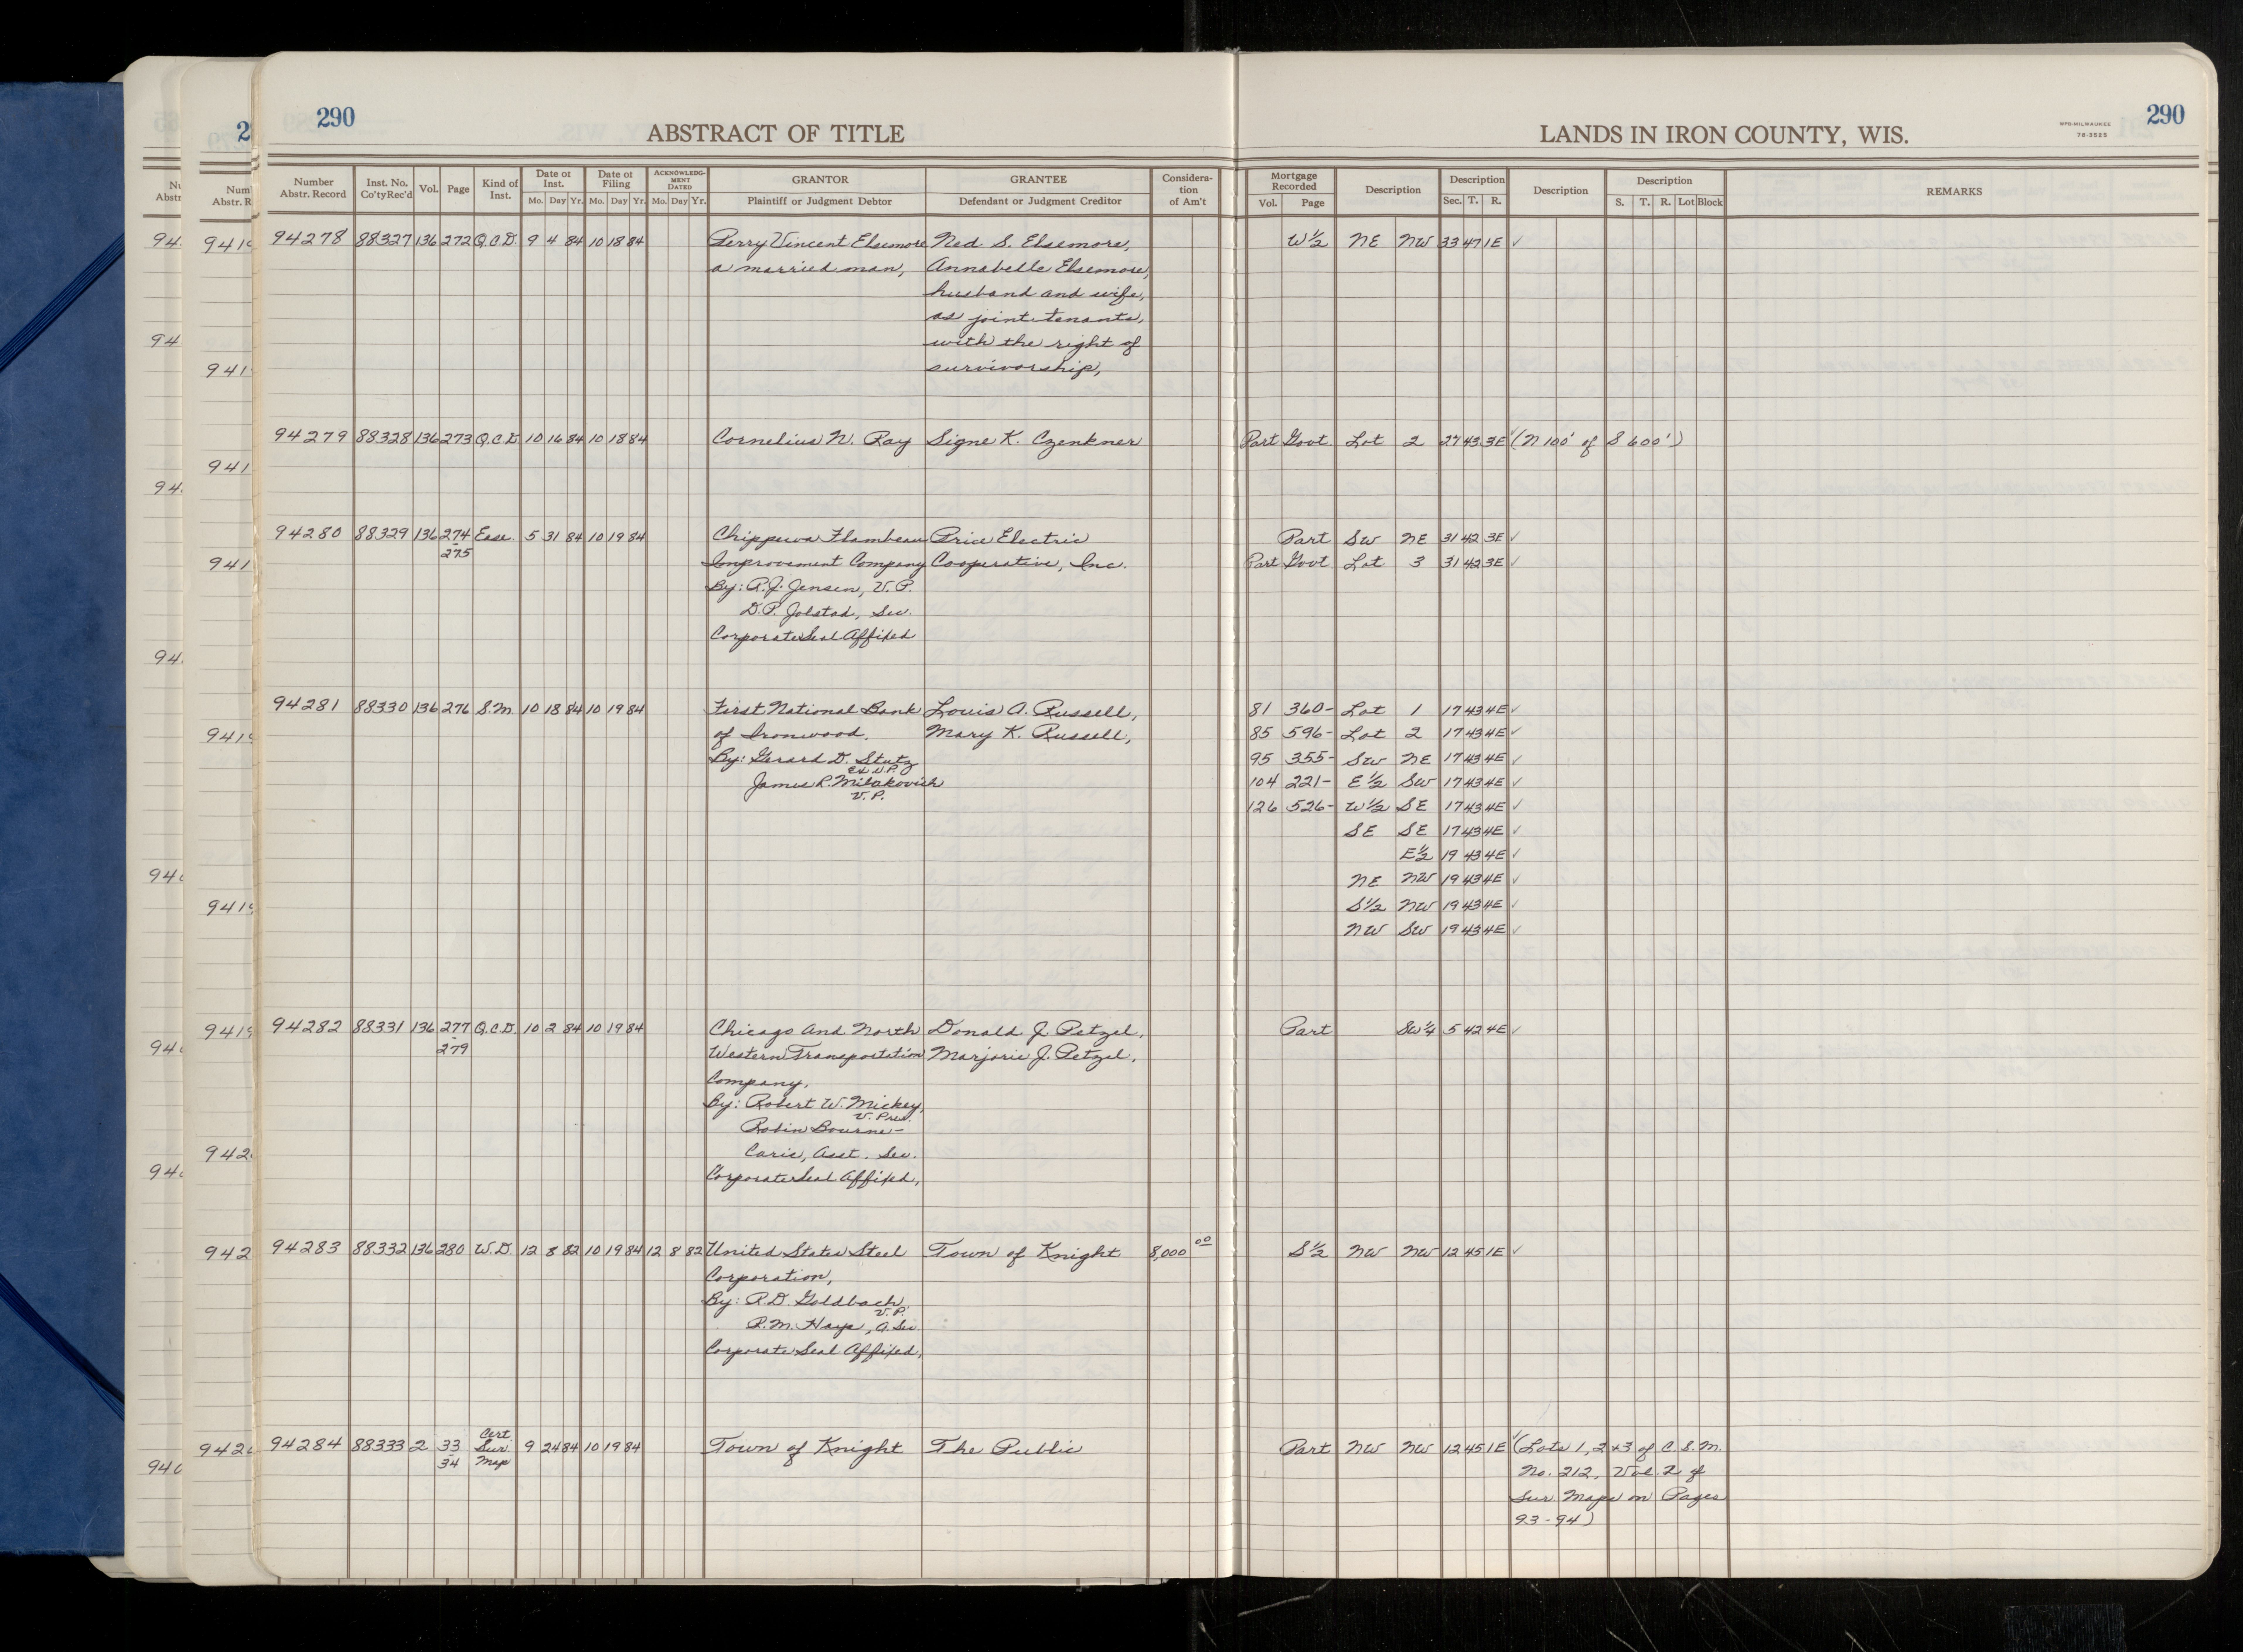 290
ABSTRACT OF TITLE
LANDS IN IRON COUNTY, WIS.
290
78-3525
Number Abstr. Record | Inst. No. Co'tyRec'd | Vol. | Page | Kind of Inst. | Date of Inst. Mo. Day Yr. | Date of Filing Mo. Day Yr. | ACKNOWLEDGMENT DATED Mo. Day Yr. | GRANTOR Plaintiff or Judgment Debtor | GRANTEE Defendant or Judgment Creditor | Considera-tion of Am't | Mortgage Recorded Vol. Page | Description | Description Sec. T. R. | Description | Description S. T. R. Lot Block | REMARKS
94278 88327 136 272 Q.C.D. 9 4 84 10 18 84 Perry Vincent Elsemore Ned S. Elsemore, W½ NE NW 33 47 1E ✓
a married man, Annabelle Elsemore,
husband and wife,
as joint tenants,
with the right of
survivorship,
94279 88328 136 273 Q.C.D. 10 16 84 10 18 84 Cornelius N. Ray Signe K. Czenkner Part Govt. Lot 2 27 43 3E ✓ (N 100' of S 600')
94280 88329 136 274 Ease. 5 31 84 10 19 84 Chippewa Flambeau Price Electric Part SW NE 31 42 3E ✓
- 275 Improvement Company Cooperative, Inc. Part Govt. Lot 3 31 42 3E ✓
By: R.J. Jensen, V.P.
D.P. Jolstad, Sec.
Corporate Seal Affixed
94281 88330 136 276 S.M. 10 18 84 10 19 84 First National Bank Louis A. Russell, 81 360- Lot 1 17 43 4E ✓
of Ironwood, Mary K. Russell, 85 596- Lot 2 17 43 4E ✓
By: Gerard D. Stutz 95 355- SW NE 17 43 4E ✓
Ex V.P.
James R. Milakovich 104 221- E½ SW 17 43 4E ✓
V.P. 126 526- W½ SE 17 43 4E ✓
SE SE 17 43 4E ✓
E½ 19 43 4E ✓
NE NW 19 43 4E ✓
S½ NW 19 43 4E ✓
NW SW 19 43 4E ✓
94282 88331 136 277 Q.C.D. 10 2 84 10 19 84 Chicago And North Donald J. Petzel, Part SW¼ 5 42 4E ✓
- 279 Western Transportation Marjorie J. Petzel,
Company,
By: Robert W. Mickey,
V. Pres.
Robin Bourne-
Caris, Asst. Sec.
Corporate Seal Affixed,
94283 88332 136 280 W.D. 12 8 82 10 19 84 12 8 82 United States Steel Town of Knight 8,000 00 S½ NW NW 12 45 1E ✓
Corporation,
By: R.D. Goldbach,
V.P.
R.M. Hays, A. Sec.
Corporate Seal Affixed,
94284 88333 2 33 - 34 Cert. Sur. Map 9 24 84 10 19 84 Town of Knight The Public Part NW NW 12 45 1E ✓ (Lots 1, 2 +3 of C.S.M.
No. 212, Vol. 2 of
Sur. Maps on Pages
93-94)